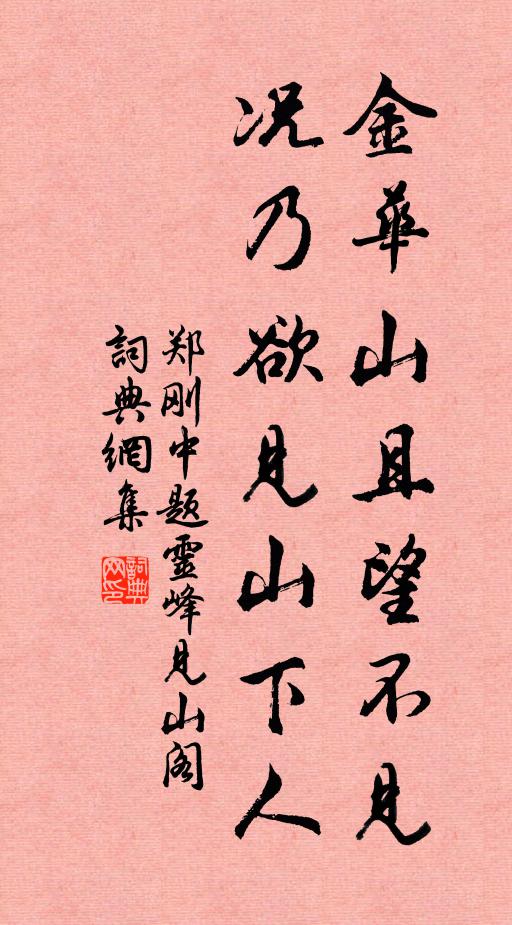 金華山且望不見
况乃欲見山下人
郑刚中题靈峰見山阁
詞典網集
詞典网印